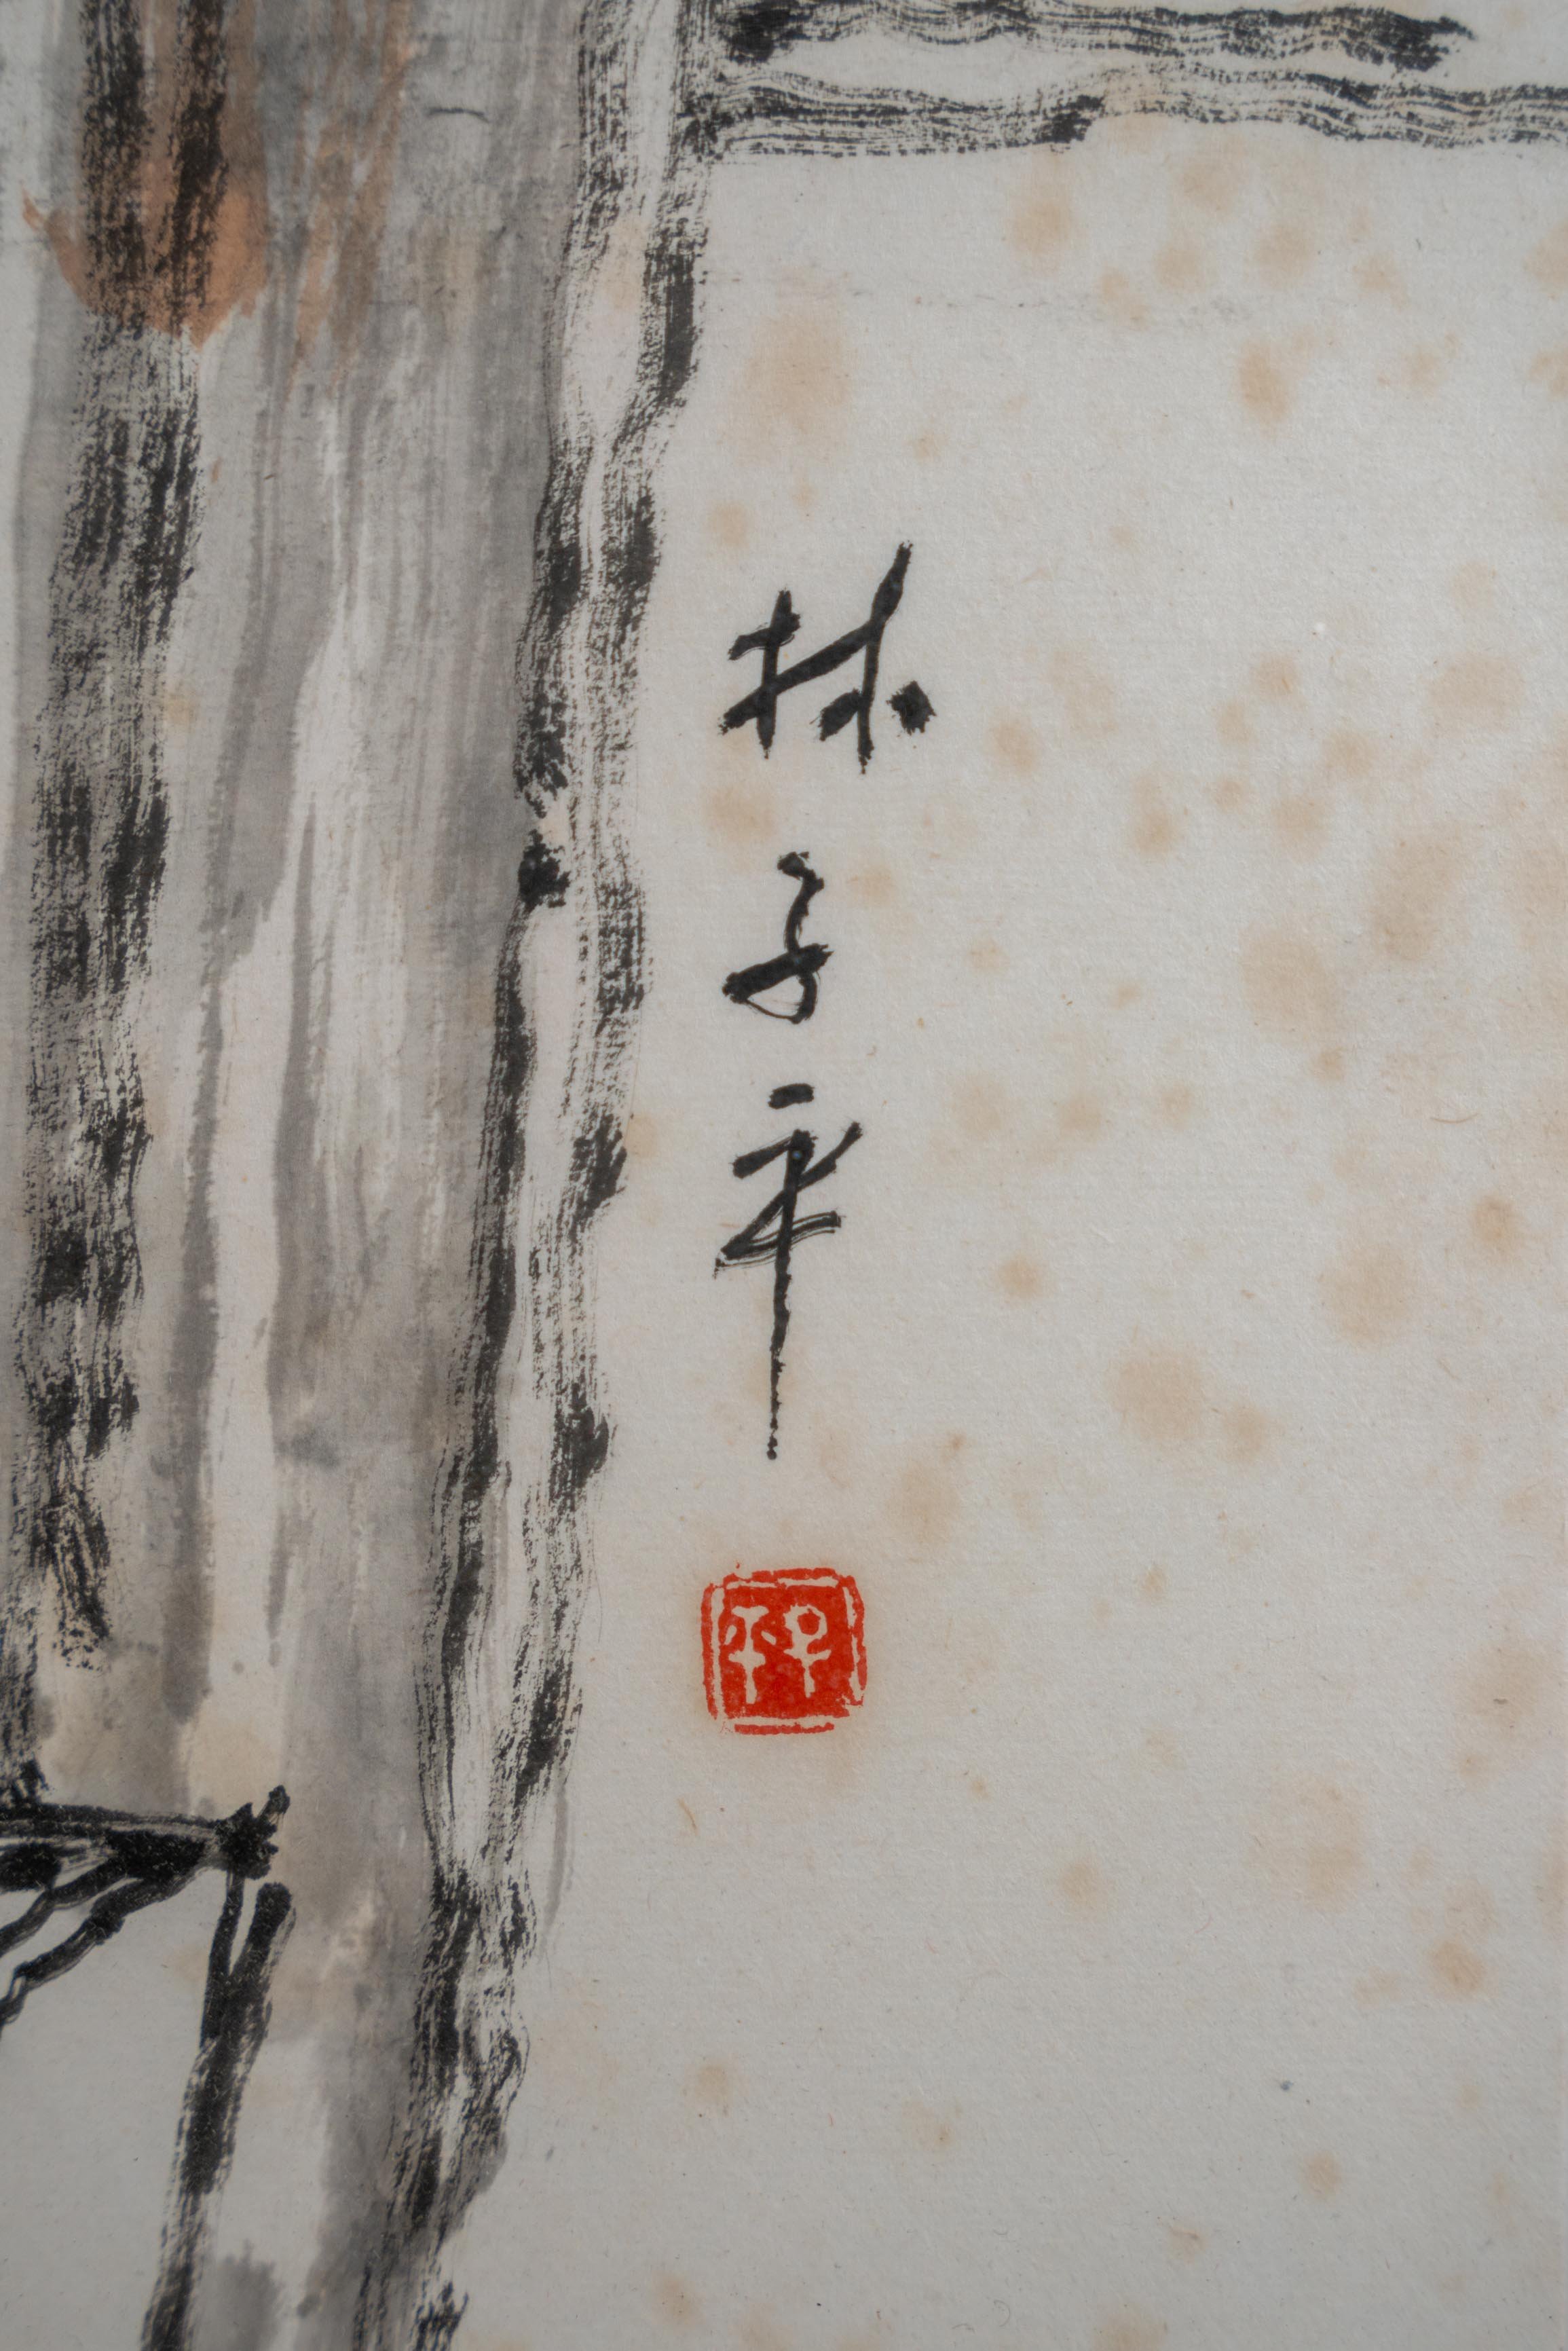 林子平
子平